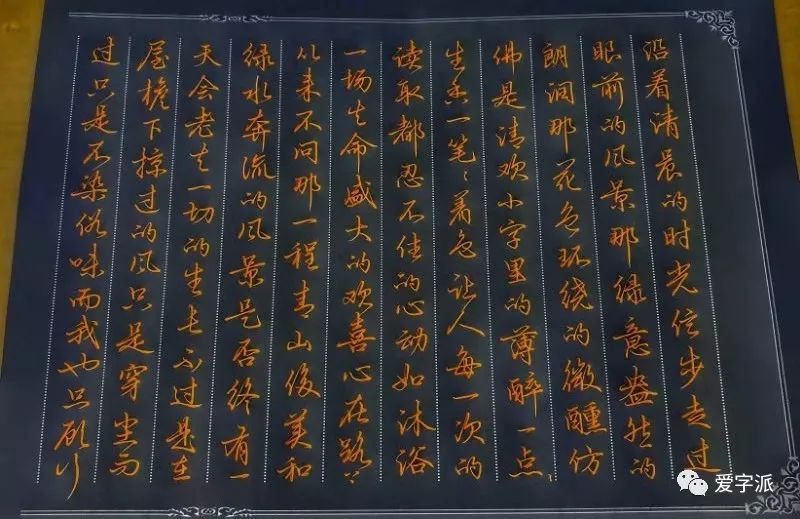 沿着清晨的时光信步走过
眼前的风景那绿意盎然的
朗润那花色环绕的微醺仿
佛是清欢小字里的薄醉一点、
生香一笔、着色让人每一次的
读取都忍不住的心动如沐浴
一场生命盛大的欢喜心在路、
以来不问那一程青山俊美和
绿水奔流的风景是否终有一
天会老去一切的生长不过是在
屋檐下掠过的风只是穿尘而
过只是不染俗味而我也只愿行
爱字派